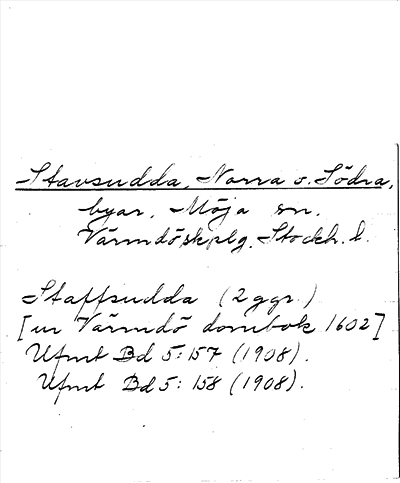 Stavsudda, Norra o. Södra,
byar, Möja sn.
Värmdö skplg, Stockh. l.
Staffsudda (2 ggr.)
[ur Värmdö dombok 1602]
Ufmt Bd 5:157 (1908).
Ufmt Bd 5: 158 (1908).